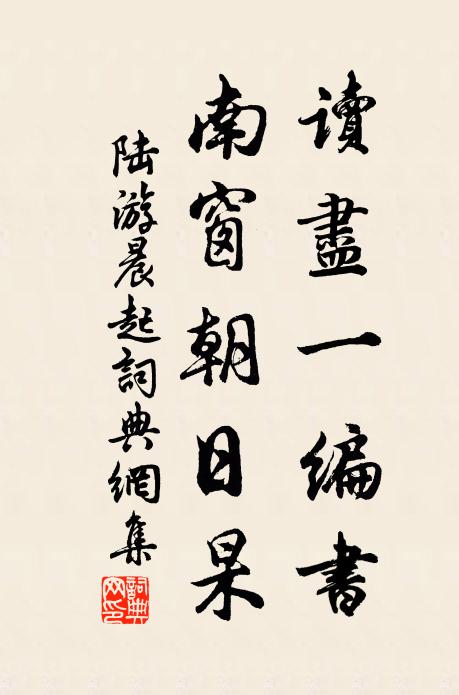 讀盡一編書
南窗朝日杲
陸游晨起詞典網集
詞典網印